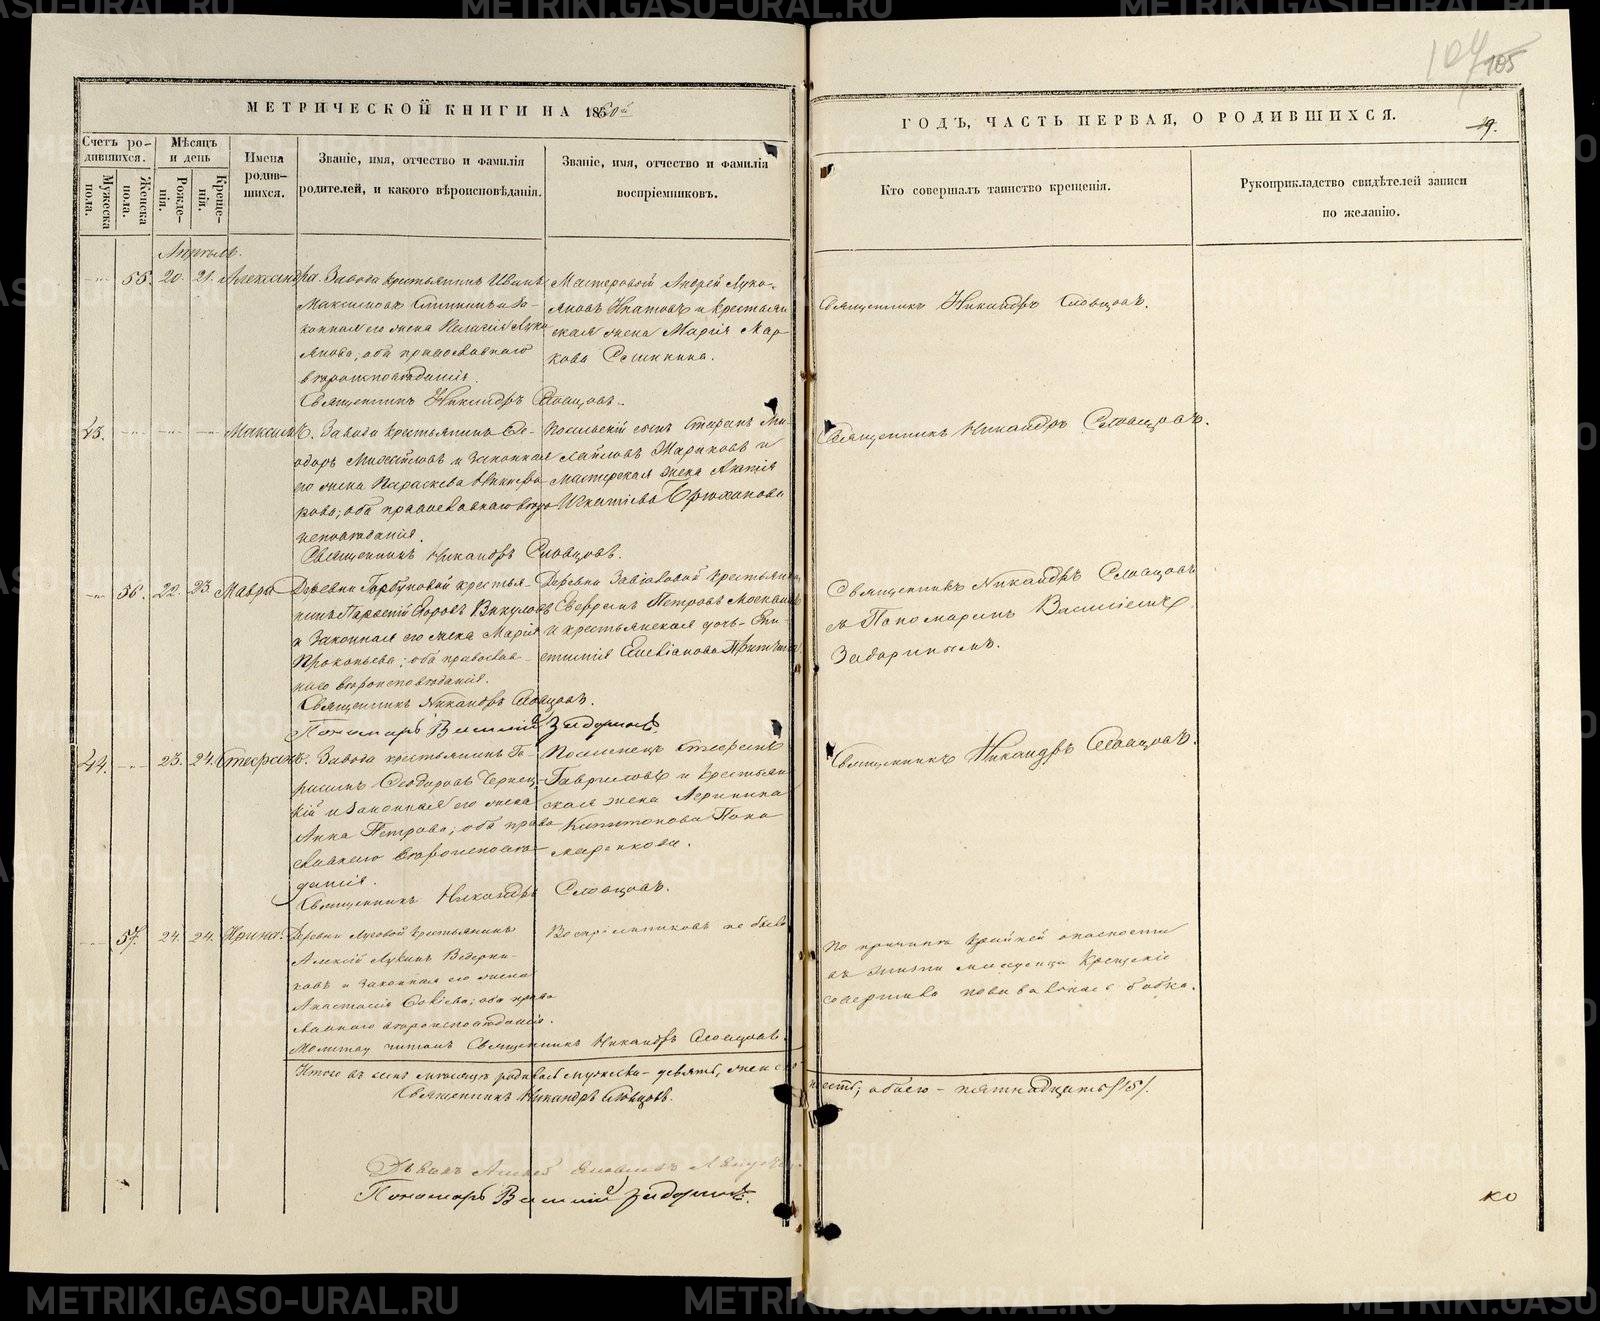 104 105
МЕТРИЧЕСКОЙ КНИГИ НА 1860й
ГОДЪ, ЧАСТЬ ПЕРВАЯ, О РОДИВШИХСЯ.
19.
Счетъ ро-
дившихся.
Мужеска
пола.
Женска
пола.
Мѣсяцъ
и день
Рожде-
нія.
Креще-
нія.
Имена
родив-
шихся.
Званіе, имя, отчество и фамилія
родителей, и какого вѣроисповѣданія.
Званіе, имя, отчество и фамилія
воспріемниковъ.
Кто совершалъ таинство крещенія.
Рукоприкладство свидѣтелей записи
по желанію.
Апрѣль.
55. 20. 21. Александра.
Завода крестьянинъ Иванъ
Максимовъ и за-
конная его жена Пелагія Лукі
янова, оба православнаго
вѣроисповѣданія.
Священникъ Никандръ Словцовъ.
Мастеровой Андрей Лукі-
яновъ Ипатовъ и крестьян
ская жена Марія Мар-
кова
Священникъ Никандръ Словцовъ.
43. Максимъ.
Завода крестьянинъ Ѳе-
одоръ Михайловъ и законная
его жена Параскева Никифо-
рова; оба православнаго вѣро
исповѣданія.
Священникъ Никандръ Словцовъ.
сынъ Стефанъ Ми-
хайловъ и
мастерская жена Анна
Игнатіева Брюханова
Священникъ Никандръ Словцовъ.
56. 22. 23. Мавра
Деревни Горбуновой крестья-
нинъ Егоровъ Викуловъ
и Законная его жена Марія
Прокопьева; оба православ-
наго вѣроисповѣданія.
Священникъ Никандръ Словцовъ.
Пономарь Василій Задоринъ.
Деревни крестьянинъ
Петровъ
и крестьянская дочь Епи-
стимія
Священникъ Никандръ Словцовъ
съ Пономаремъ Василіемъ
Задоринымъ.
44. 23. 24. Стефанъ.
Завода крестьянинъ Ге-
расимъ Ѳеодоровъ Чернец-
кій и Законная его жена
Анна Петрова; оба право
славнаго вѣроисповѣ-
данія.
Священникъ Никандръ Словцовъ.
Поселенецъ Стефанъ
Гавриловъ и крестьян
ская жена Агрипина
Капитонова Поно
маренкова.
Священникъ Никандръ Словцовъ.
57. 24. 24. Ирина.
Деревни Луговой крестьянинъ
Алексій Лукинъ Ведерни-
ковъ и законная его жена
Анастасія ; оба право
славнаго вѣроисповѣданія.
Молитву читалъ Священникъ Никандръ Словцовъ.
Воспріемниковъ не было.
По причинѣ крайней опасности
въ жизни младенца Крещеніе
совершила повивальная бабка.
Итого въ семъ мѣсяцѣ родилось мужеска - девять, женска
шесть; обоего - пятнадцать /15/.
Священникъ Никандръ Словцовъ.
Дьяконъ
Пономарь Василій Задоринъ.
ко